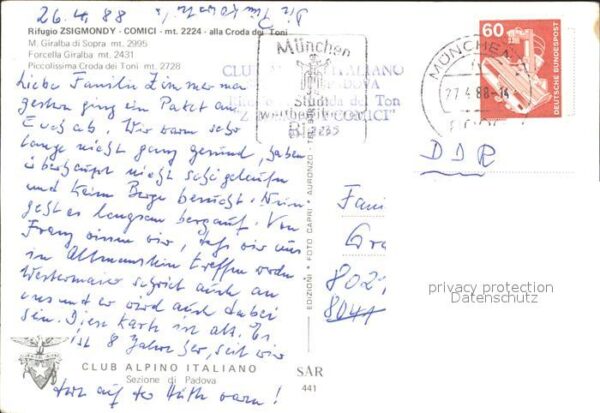 26.4.88
Rifugio ZSIGMONDY - COMICI - mt. 2224 - alla Croda dei Toni
M. Giralba di Sopra mt. 2995
Forcella Giralba mt. 2431
Piccolissima Croda dei Toni mt. 2728
Liebe Familie Zimmerma
gestern ging ein Paket an
Euch ab. Wir waren sehr
lange nicht ganz gesund, haben
überhaupt nicht schigelaufen
und keine Berge besucht. Nun
geht es langsam bergauf. Von
Franz wissen wir, daß wir uns
in Altmannstein treffen wollen
Westermaier schrieb auch an
uns und er wird auch dabei
sein. Diese Karte ist alt. Es
ist 8 Jahre her, seit wir
dort auf der Hütte waren!
CLUB ALPINO ITALIANO
Sezione di Padova
EDIZIONI * FOTO CAPRI * AURONZO
SAR
441
München
CLUB ALPINO ITALIANO
PADOVA
COMICI"
60
DEUTSCHE BUNDESPOST
MÜNCHEN
27.4.88-14
DDR
Fami
Gra
802
8041
privacy protection
Datenschutz